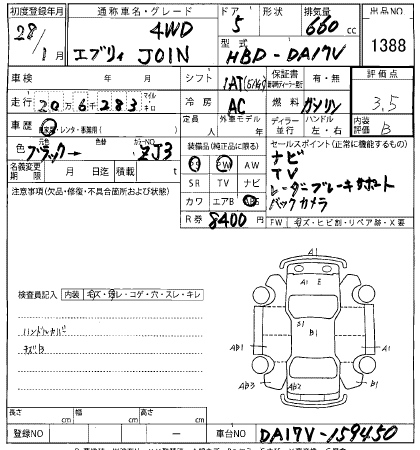 初度登録年月
28/1 月
通称車名・グレード
4WD
エブリィ JOIN
ドア 5 形状
排気量 660 cc
型式 HBD-DA17V
出品NO
1388
車検 年 月
シフト 1AT(5/4F)
保証書 有・無
評価点
3.5
走行 20万6千283 マイル キロ
冷房 AC
燃料 ガソリン
車歴 自家用・レンタ・事業用( )
外車モデル 年
ディーラー 並行
ハンドル 左・右
内装評価 B
色 元色 ブラック 色替 カラーNO. ZJ3
装備品(純正品に限る)
PS PW AW
SR TV ナビ
カワ エアB ABS
R券 8400円
セールスポイント(正常に機能するもの)
ナビ
TV
レーダーブレーキサポート
バックカメラ
名義変更期限 月 日迄 積載 t
注意事項(欠品・修復・不具合箇所および状態)
FW キズ・ヒビ割・リペア跡・X要
検査員記入 内装 キズ・汚レ・コゲ・穴・スレ・キレ
ハンドルカバー
キズB
A1
A1 E
S B1
AB1 B1 A1
AB3 AB2 B1
長さ cm 幅 cm 高さ cm
登録NO ー
車台NO DA17V-159450